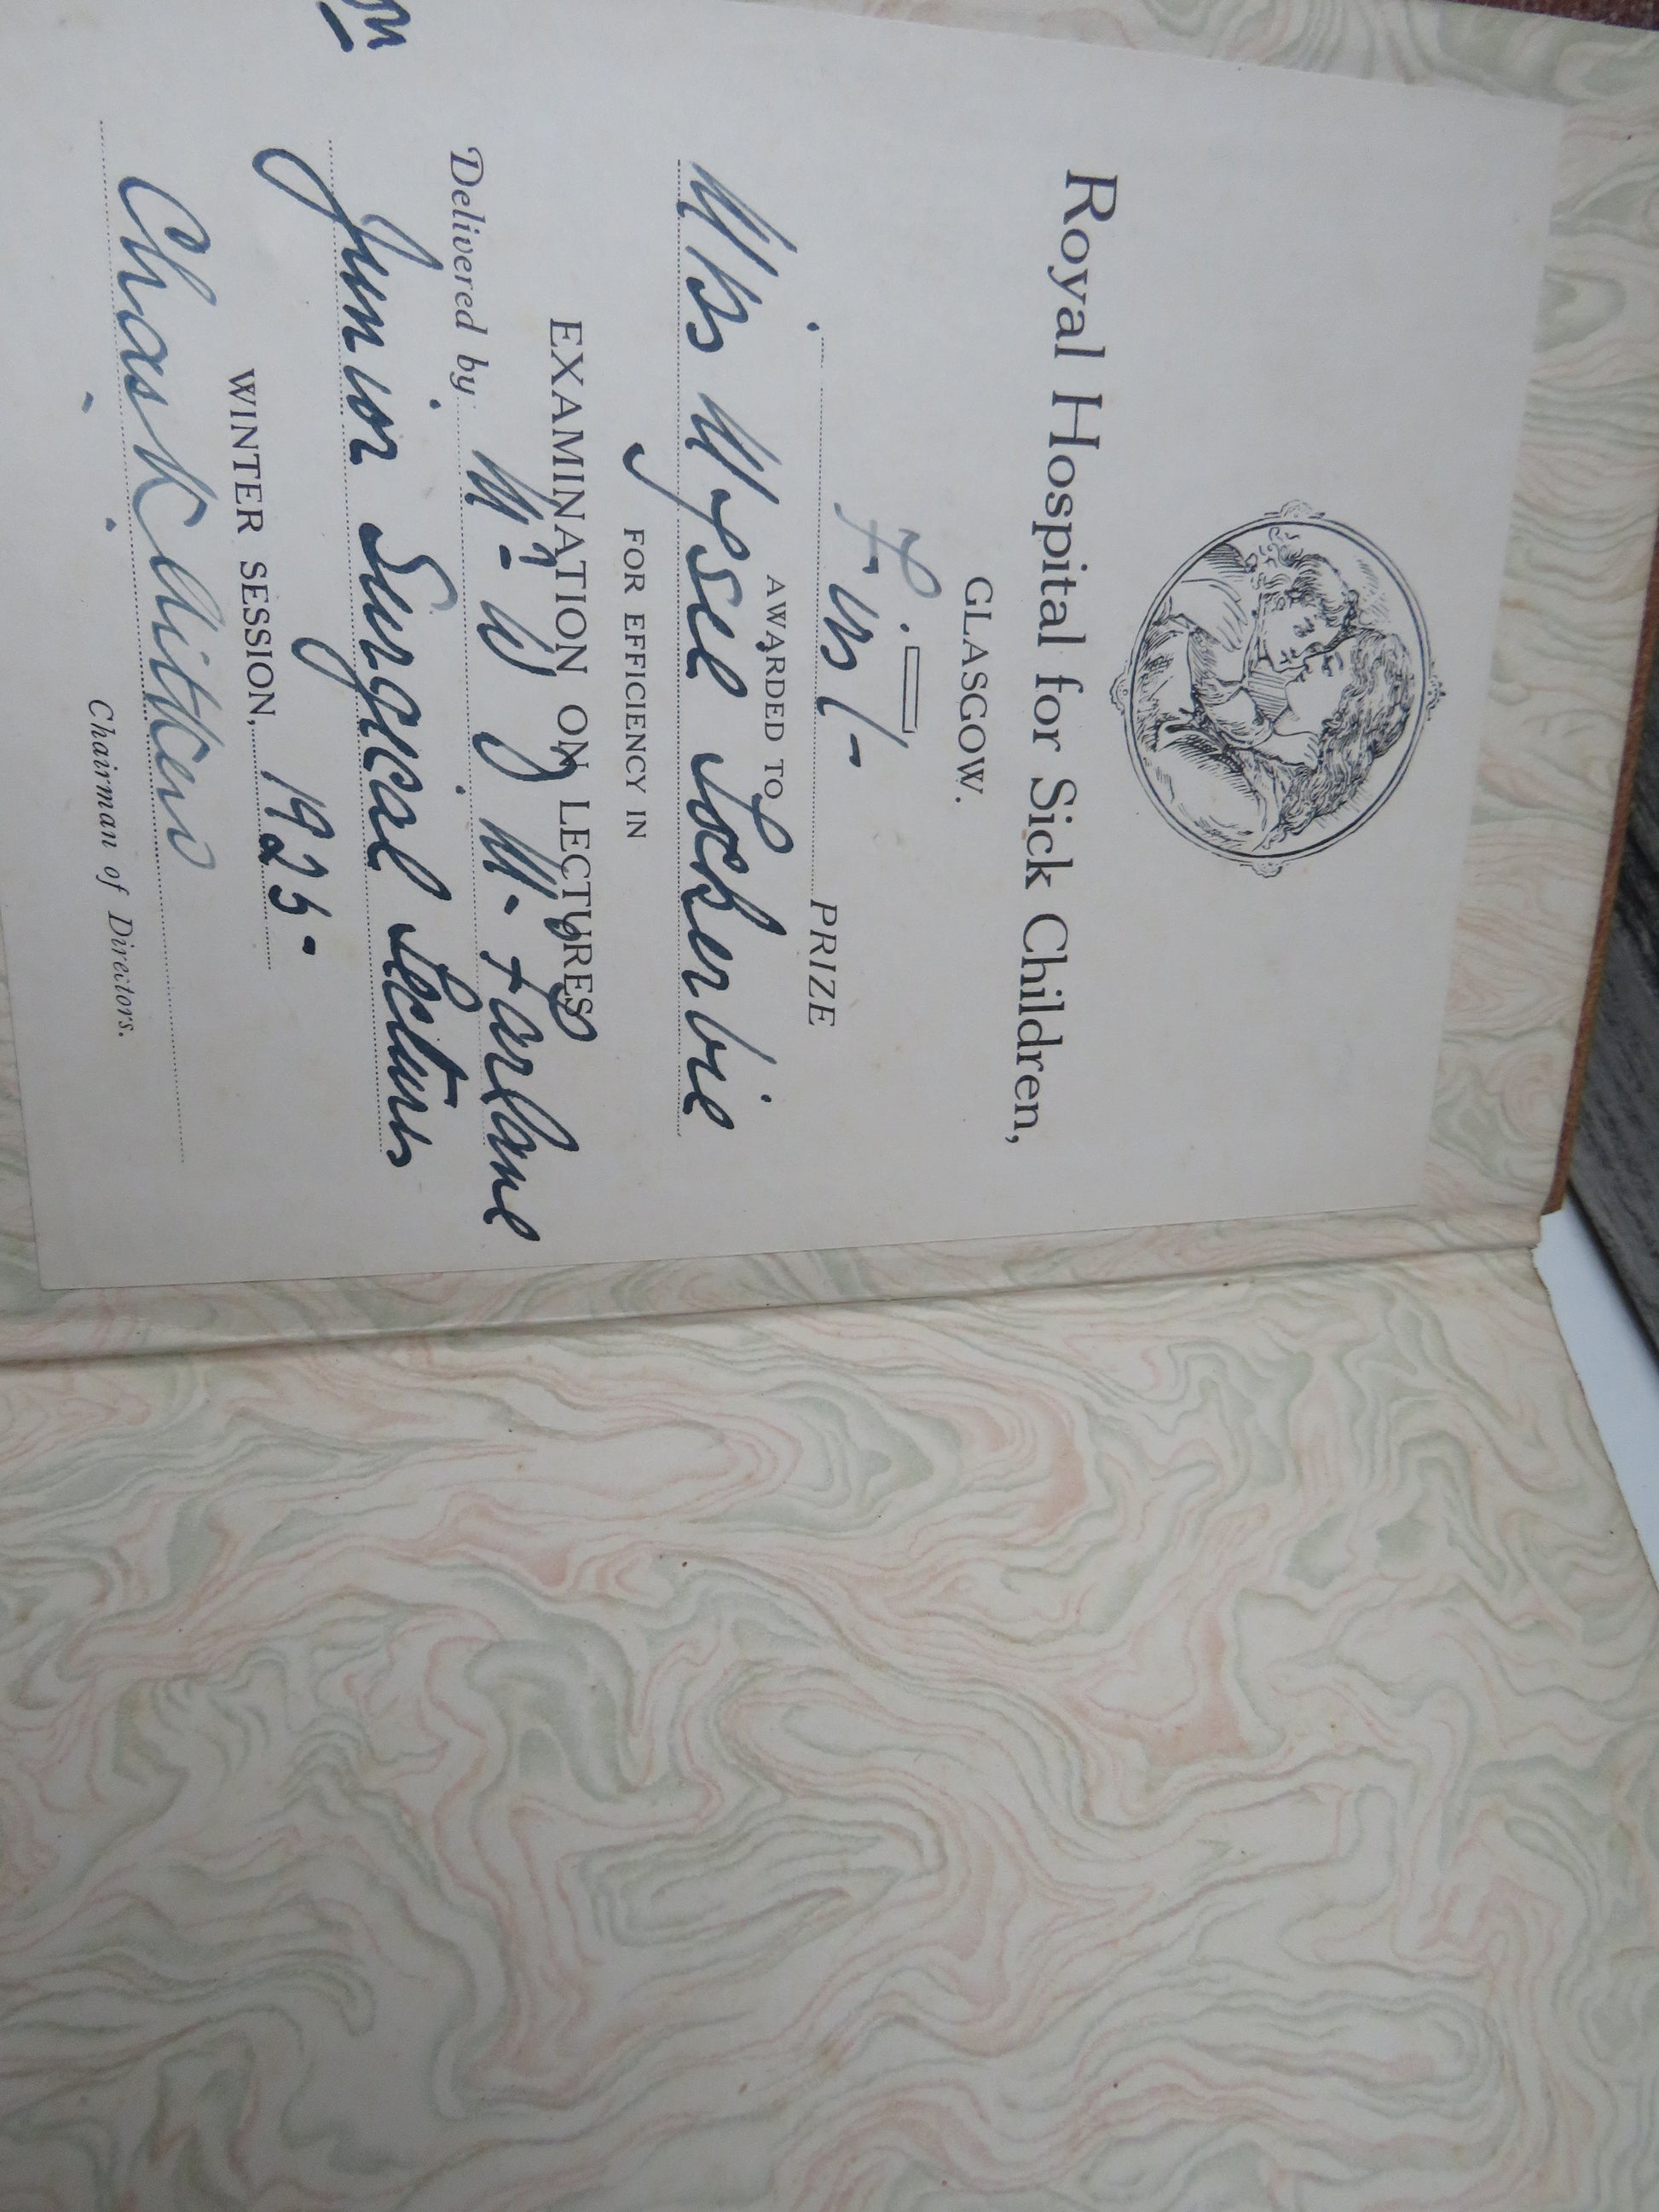 Royal Hospital for Sick Children,
GLASGOW.
First PRIZE
AWARDED TO
Miss Lockerbie
FOR EFFICIENCY IN
EXAMINATION ON LECTURES
Delivered by Mr. W
Junior Surgical Lectures
WINTER SESSION, 1925.
Chas K
Chairman of Directors.